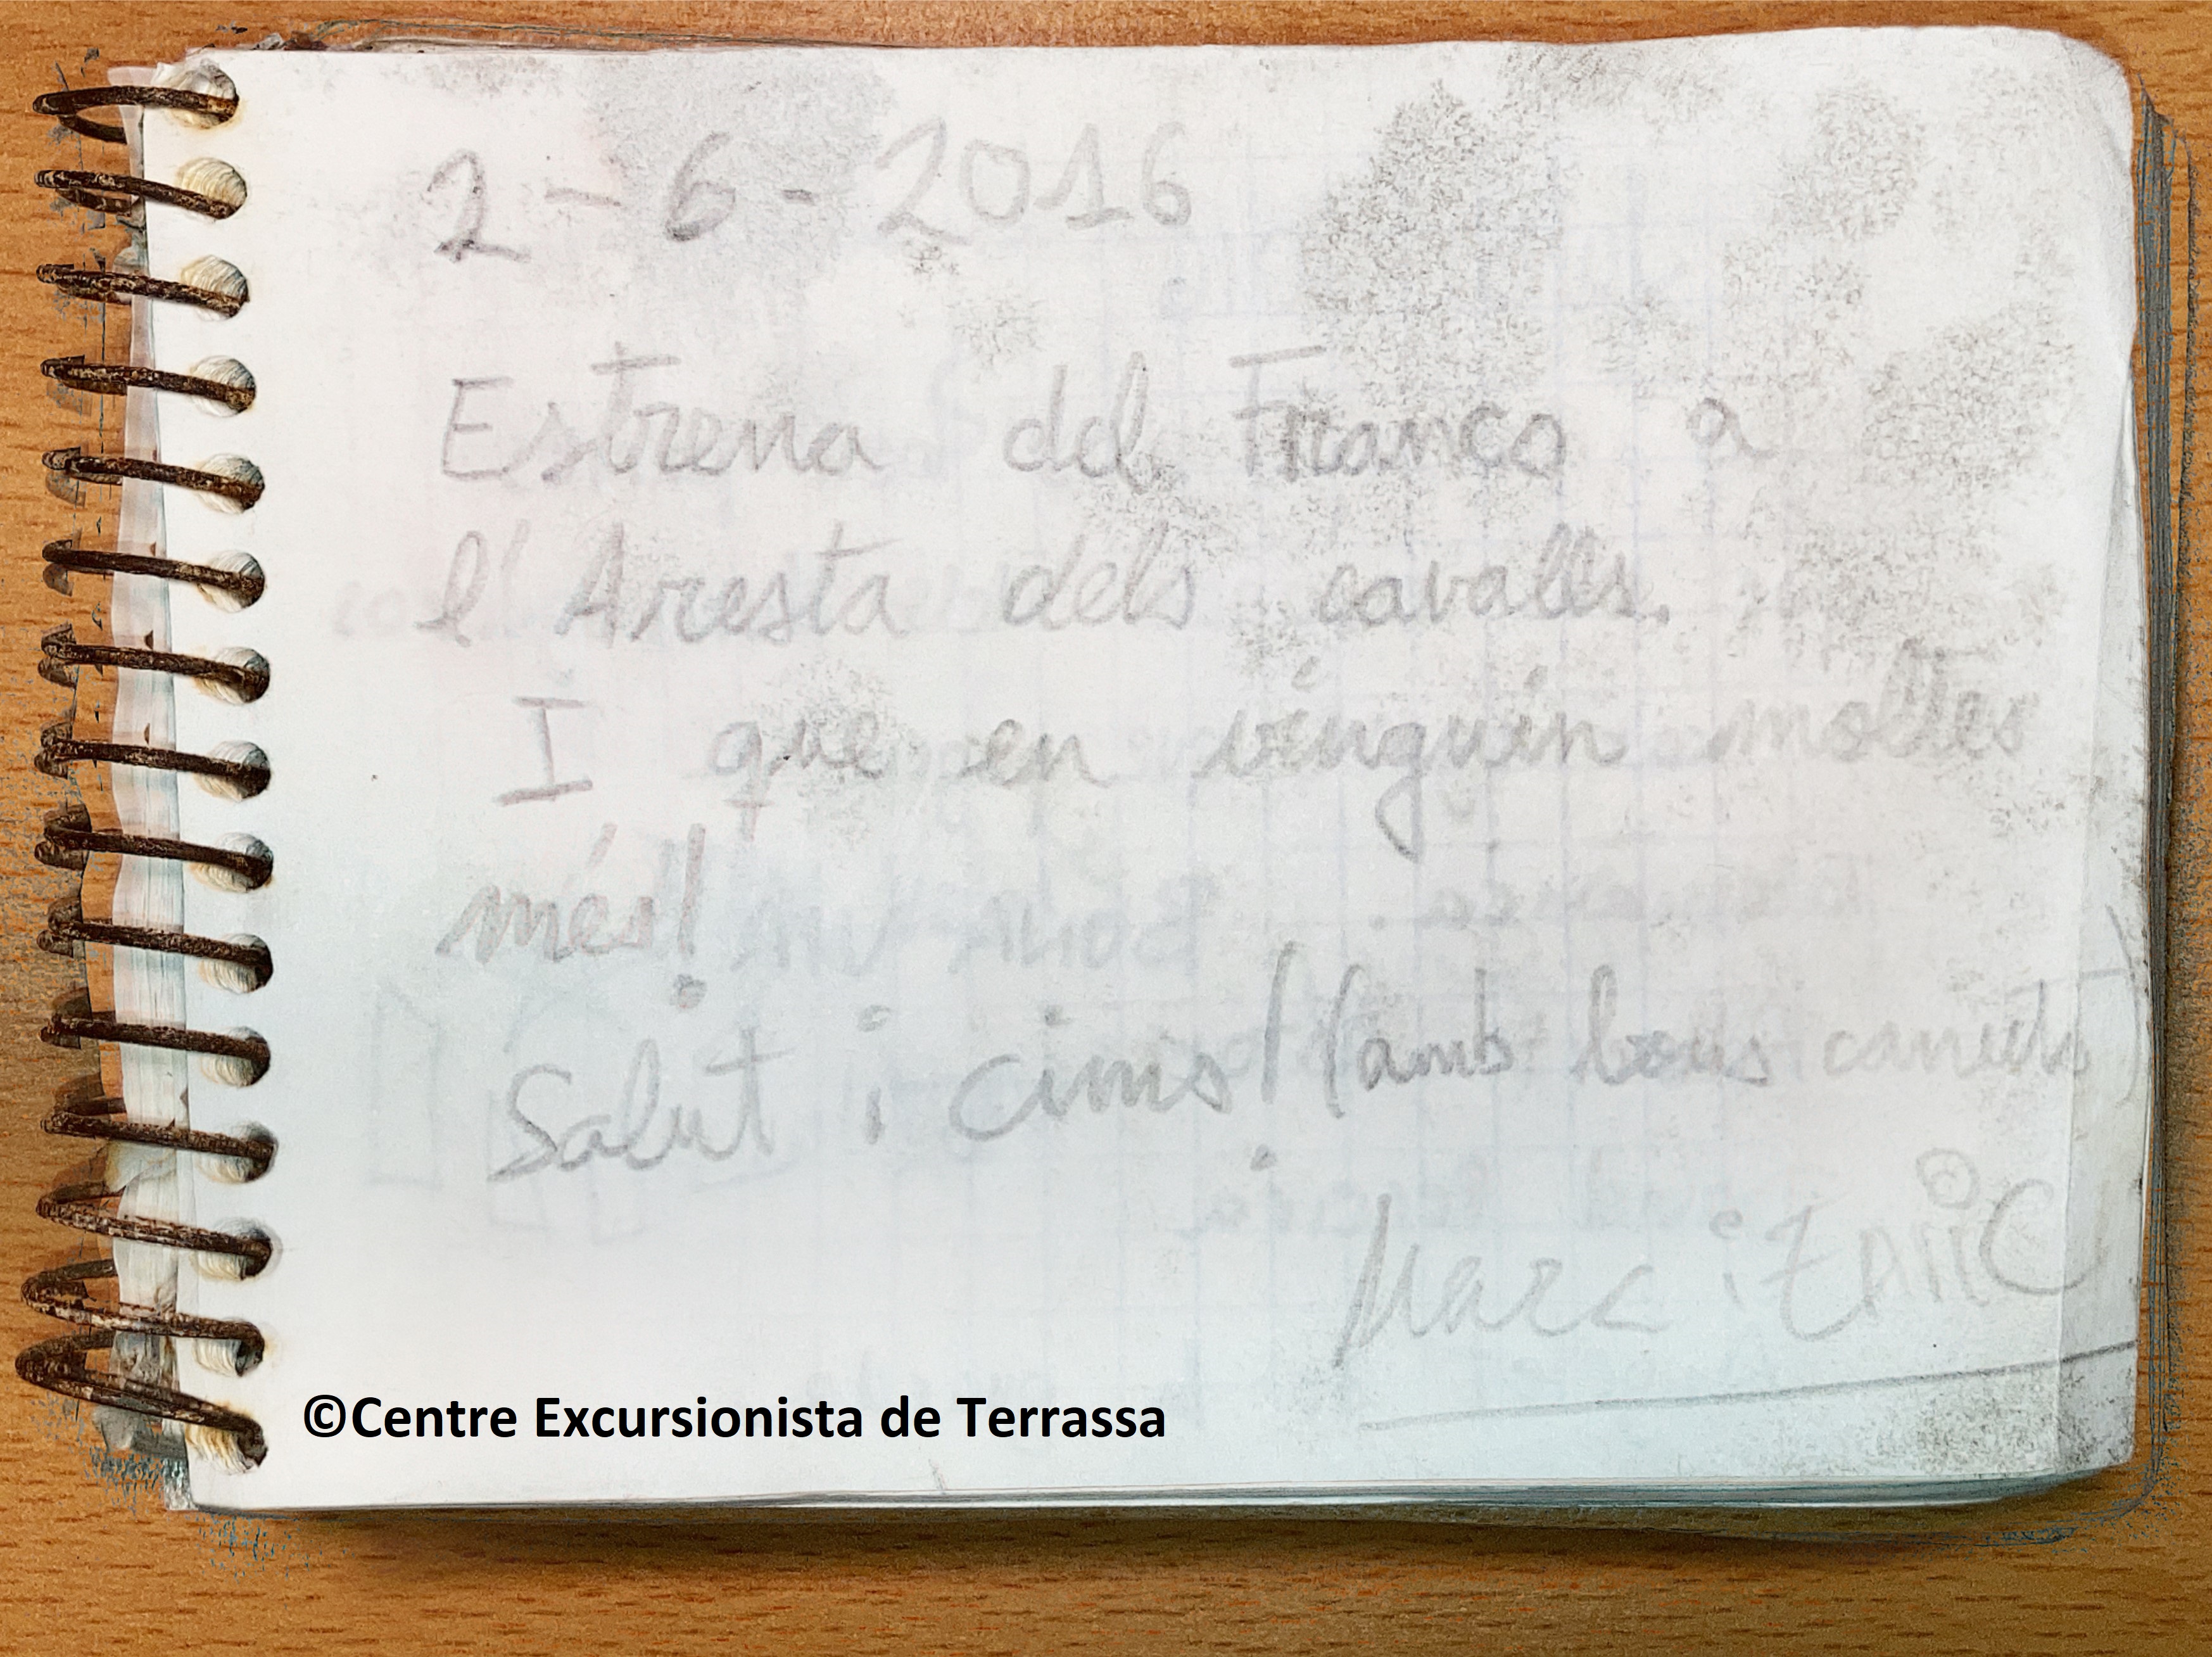 2 - 6 - 2016
Estrena del Franco a
l'Aresta dels cavalls.
I que en vinguin moltes
més!
Salut i cims! (amb bons canuts)
Marc i Enric
©Centre Excursionista de Terrassa